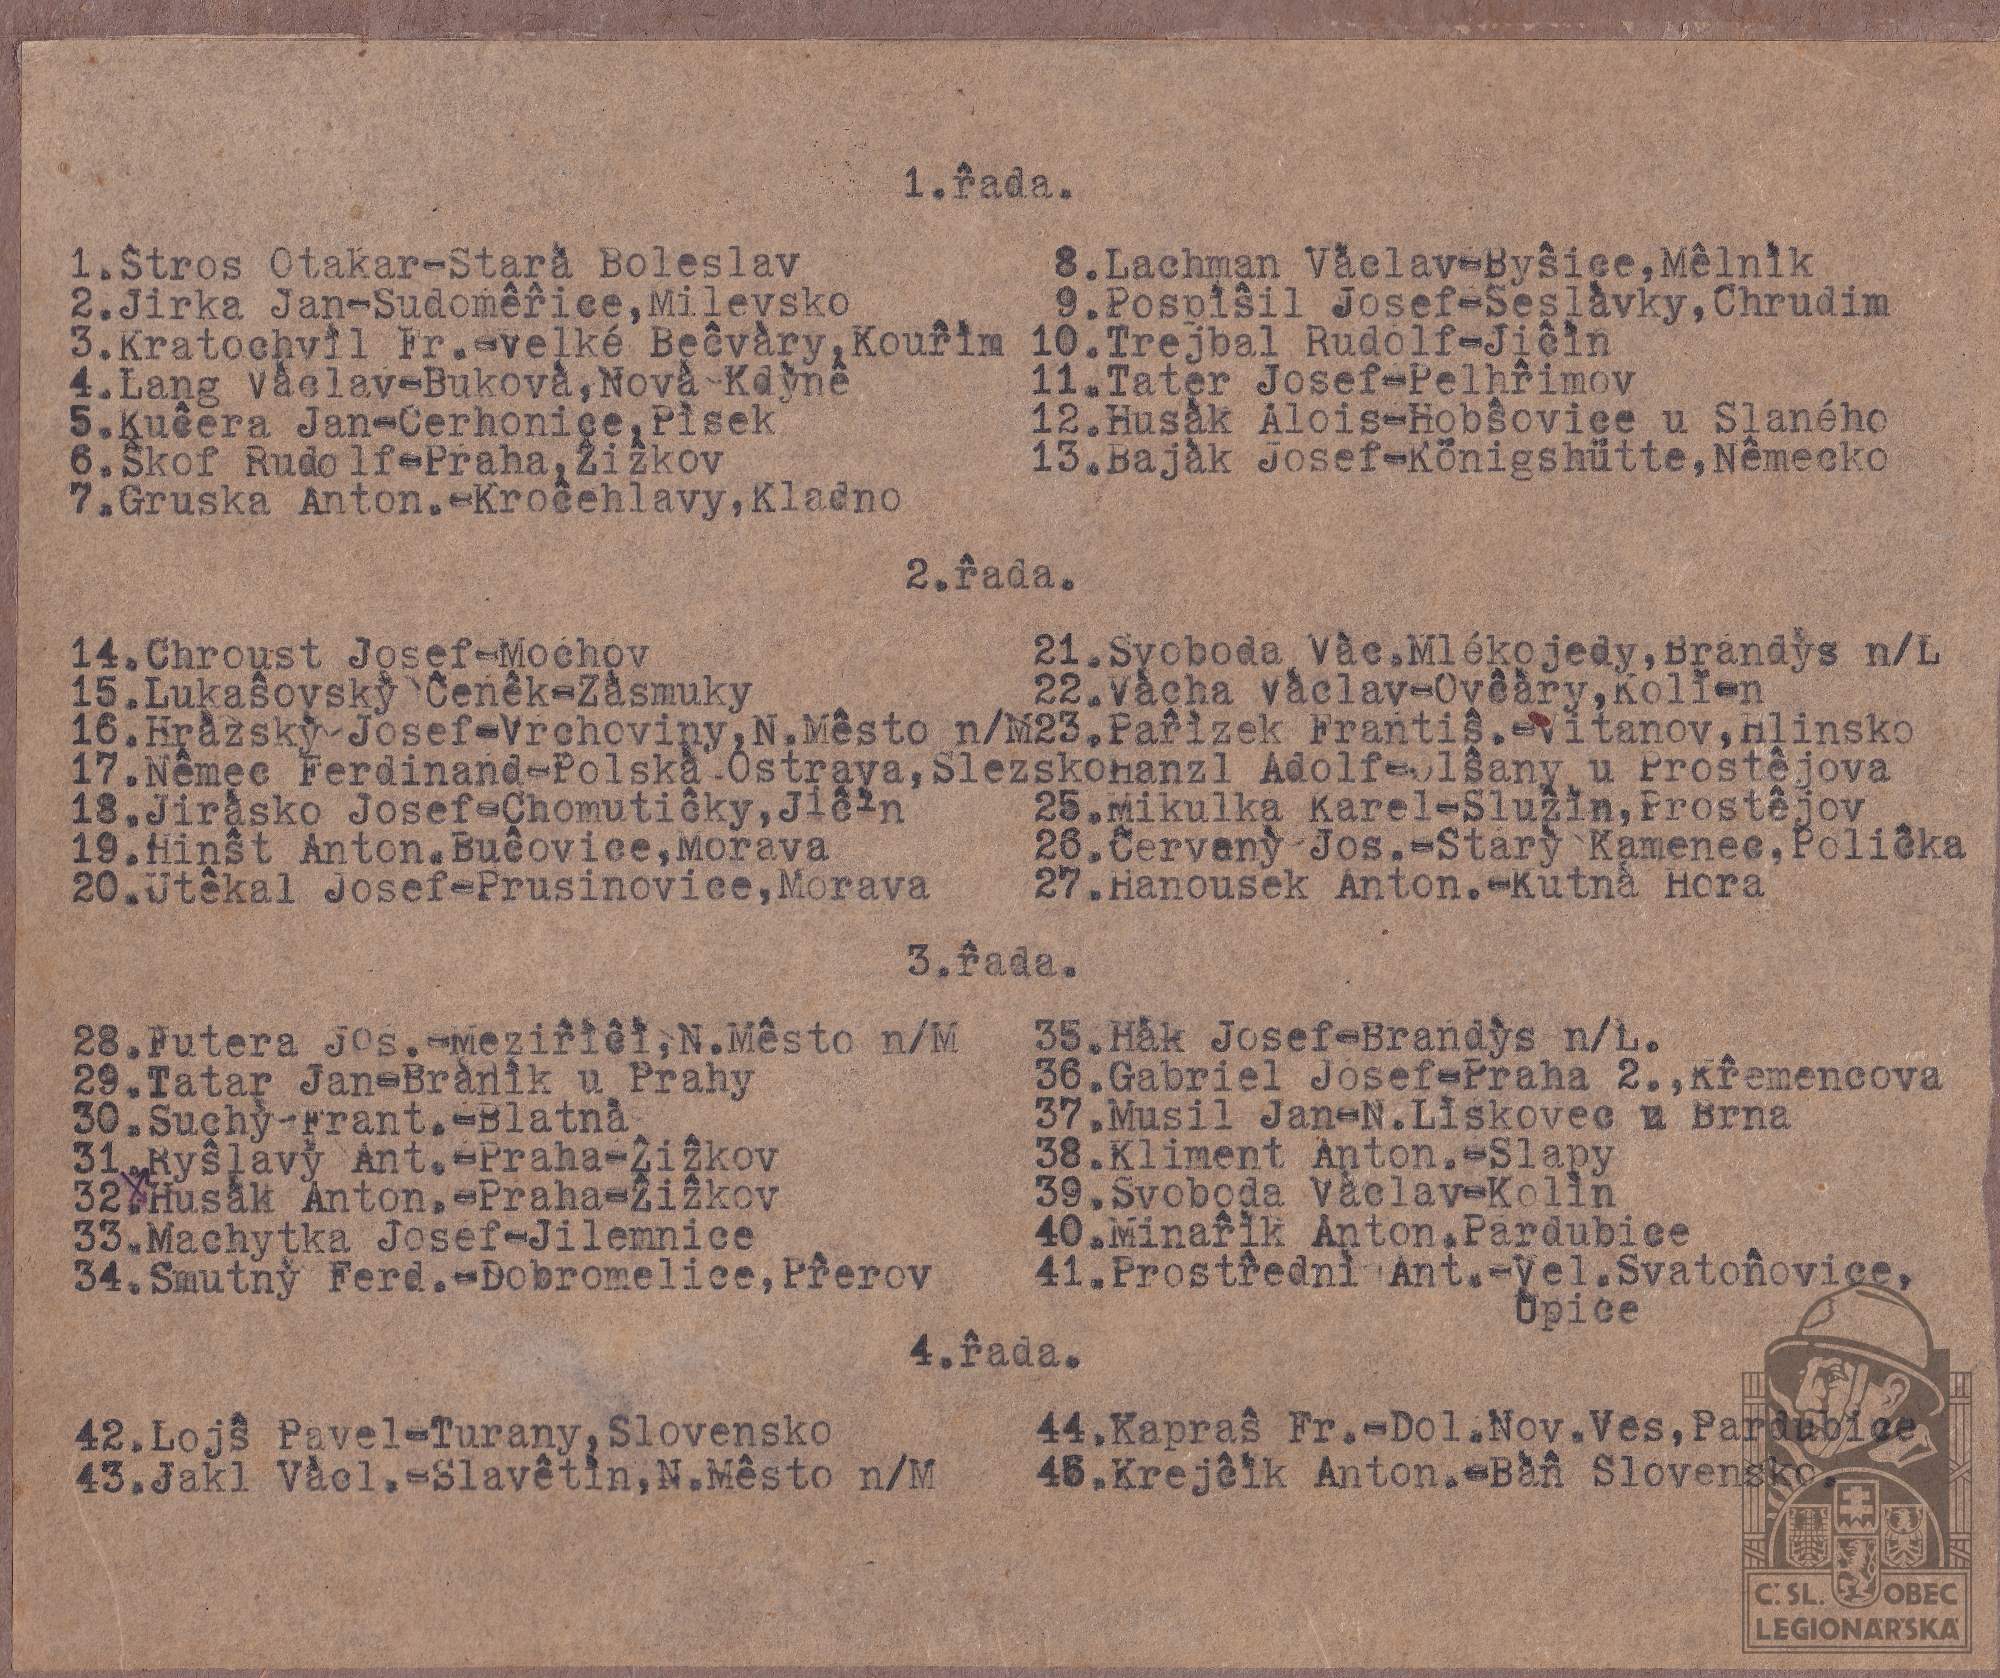 1.řada.
1.Štros Otakar-Stará Boleslav
2.Jirka Jan-Sudoměřice,Milevsko
3.Kratochvíl Fr.-Velké Bečváry,Kouřim
4.Lang Václav-Buková,Nová Kdýně
5.Kučera Jan-Čerhonice,Písek
6.Škof Rudolf-Praha,Žižkov
7.Gruska Anton.-Kročehlavy,Kladno
8.Lachman Václav-Byšice,Mělník
9.Pospíšil Josef-Seslávky,Chrudim
10.Trejbal Rudolf-Jičín
11.Tater Josef-Pelhřimov
12.Husák Alois-Hobšovice u Slaného
13.Baják Josef-Königshütte,Německo
2.řada.
14.Chroust Josef-Mochov
15.Lukašovský Čeněk-Zásmuky
16.Hrázský Josef-Vrchoviny,N.Město n/M
17.Němec Ferdinand-Polská Ostrava,Slezsko
18.Jirásko Josef-Chomutičky,Jičín
19.Hinšt Anton.Bučovice,Morava
20.Utěkal Josef-Prusinovice,Morava
21.Svoboda Vác.Mlékojedy,Brandýs n/L
22.Vácha Václav-Ovčáry,Kolí-n
23.Pařízek Františ.-Vítanov,Hlinsko
Hanzl Adolf-Olšany u Prostějova
25.Mikulka Karel-Služín,Prostějov
26.Červený Jos.-Starý Kamenec,Polička
27.Hanousek Anton.-Kutná Hora
3.řada.
28.Futera Jos.-Meziříčí,N.Město n/M
29.Tatar Jan-Braník u Prahy
30.Suchý Frant.-Blatná
31.Ryšlavý Ant.-Praha-Žižkov
32.Husák Anton.-Praha-Žižkov
33.Machytka Josef-Jilemnice
34.Smutný Ferd.-Dobromelice,Přerov
35.Hák Josef-Brandýs n/L.
36.Gabriel Josef-Praha 2.,Křemencova
37.Musil Jan-N.Lískovec u Brna
38.Kliment Anton.-Slapy
39.Svoboda Václav-Kolín
40.Minařík Anton.Pardubice
41.Prostřední Ant.-Vel.Svatoňovice,
Úpice
4.řada.
42.Lojš Pavel-Turany,Slovensko
43.Jakl Václ.-Slavětín,N.Město n/M
44.Kapraš Fr.-Dol.Nov.Ves,Pardubice
45.Krejčík Anton.-Báň Slovensko.
Č.SL. OBEC
LEGIONÁŘSKÁ